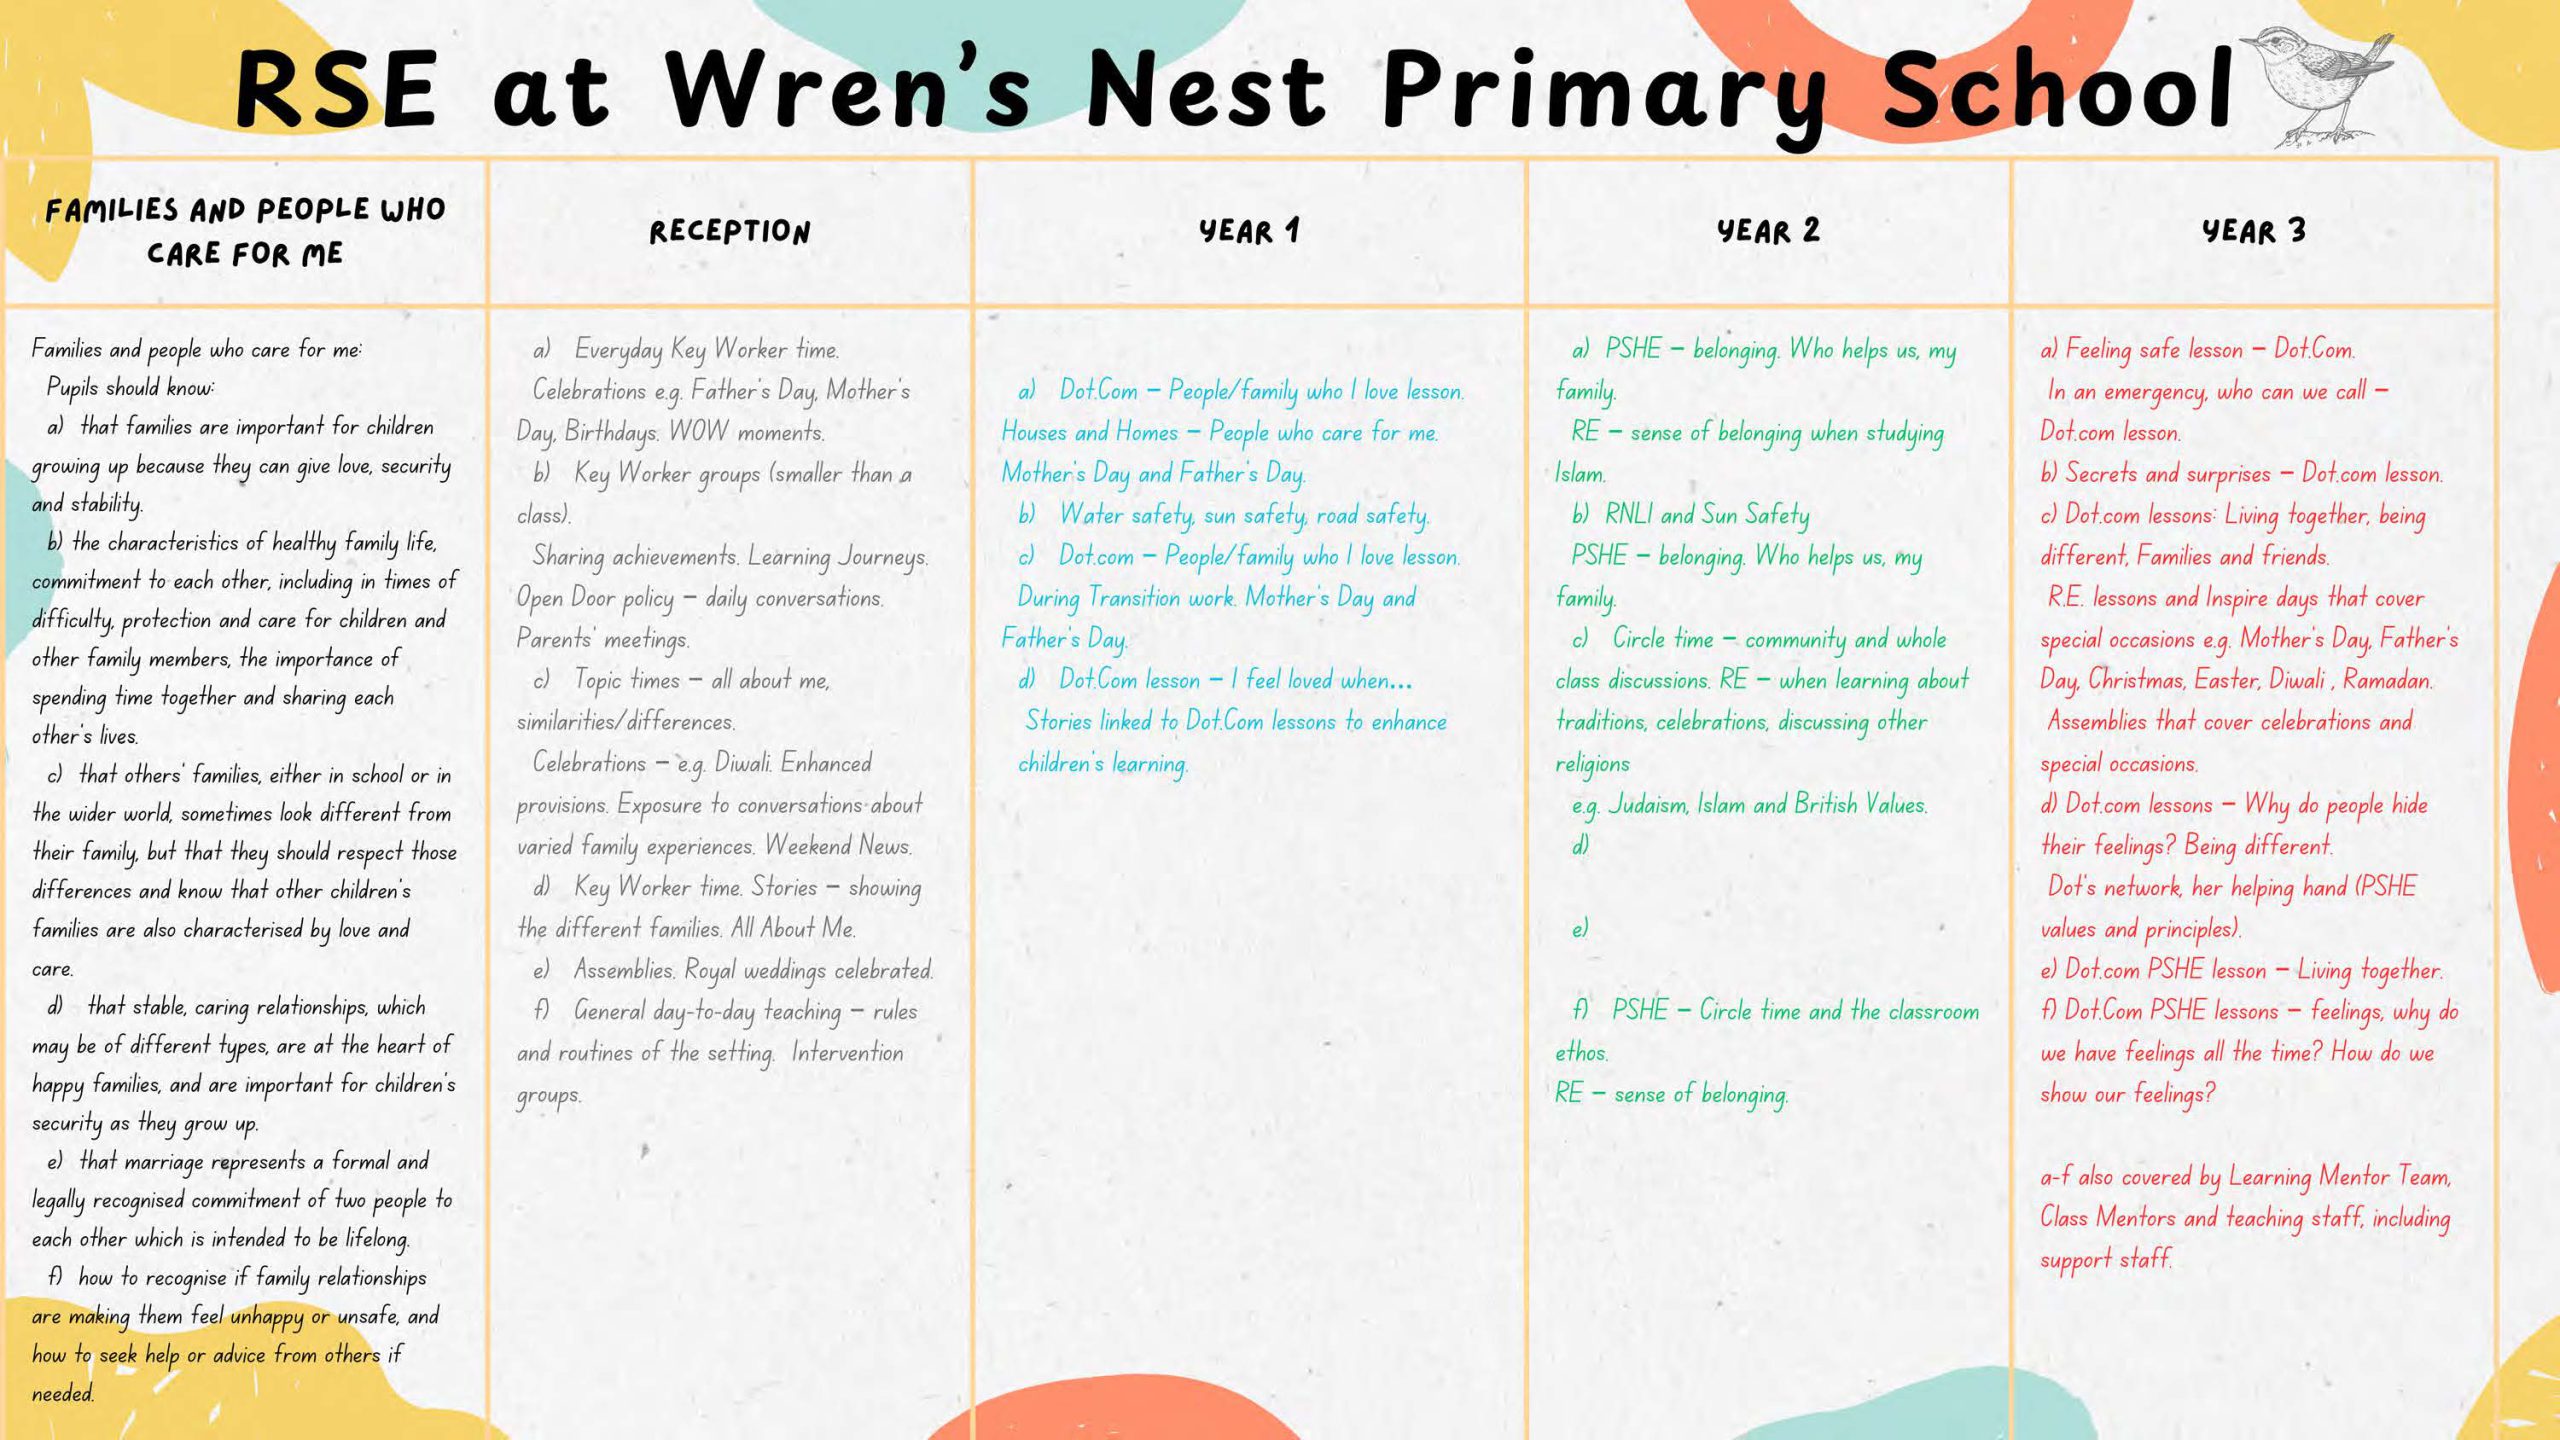 RSE at Wren's Nest Primary School
FAMILIES AND PEOPLE WHO
CARE FOR ME
RECEPTION
YEAR 1
YEAR 2
YEAR 3
Families and people who care for me:
Pupils should know:
a) that families are important for children
growing up because they can give love, security
and stability.
b) the characteristics of healthy family life,
commitment to each other, including in times of
difficulty, protection and care for children and
other family members, the importance of
spending time together and sharing each
other's lives.
c) that others' families, either in school or in
the wider world, sometimes look different from
their family, but that they should respect those
differences and know that other children's
families are also characterised by love and
care.
d) that stable, caring relationships, which
may be of different types, are at the heart of
happy families, and are important for children's
security as they grow up.
e) that marriage represents a formal and
legally recognised commitment of two people to
each other which is intended to be lifelong.
f) how to recognise if family relationships
are making them feel unhappy or unsafe, and
how to seek help or advice from others if
needed.
a) Everyday Key Worker time.
Celebrations e.g. Father's Day, Mother's
Day, Birthdays. WOW moments.
b) Key Worker groups (smaller than a
class).
Sharing achievements. Learning Journeys.
Open Door policy – daily conversations.
Parents' meetings.
c) Topic times – all about me,
similarities/differences.
Celebrations – e.g. Diwali. Enhanced
provisions. Exposure to conversations about
varied family experiences. Weekend News.
d) Key Worker time. Stories – showing
the different families. All About Me.
e) Assemblies. Royal weddings celebrated.
f) General day-to-day teaching – rules
and routines of the setting. Intervention
groups.
a) Dot.Com – People/family who I love lesson.
Houses and Homes – People who care for me.
Mother's Day and Father's Day.
b) Water safety, sun safety, road safety.
c) Dot.com – People/family who I love lesson.
During Transition work. Mother's Day and
Father's Day.
d) Dot.Com lesson – I feel loved when...
Stories linked to Dot.Com lessons to enhance
children's learning.
a) PSHE – belonging. Who helps us, my
family.
RE – sense of belonging when studying
Islam.
b) RNLI and Sun Safety
PSHE – belonging. Who helps us, my
family.
c) Circle time – community and whole
class discussions. RE – when learning about
traditions, celebrations, discussing other
religions
e.g. Judaism, Islam and British Values.
d)
e)
f) PSHE – Circle time and the classroom
ethos.
RE – sense of belonging.
a) Feeling safe lesson – Dot.Com.
In an emergency, who can we call –
Dot.com lesson.
b) Secrets and surprises – Dot.com lesson.
c) Dot.com lessons: Living together, being
different, Families and friends.
R.E. lessons and Inspire days that cover
special occasions e.g. Mother's Day, Father's
Day, Christmas, Easter, Diwali , Ramadan.
Assemblies that cover celebrations and
special occasions.
d) Dot.com lessons – Why do people hide
their feelings? Being different.
Dot's network, her helping hand (PSHE
values and principles).
e) Dot.com PSHE lesson – Living together.
f) Dot.Com PSHE lessons – feelings, why do
we have feelings all the time? How do we
show our feelings?
a-f also covered by Learning Mentor Team,
Class Mentors and teaching staff, including
support staff.